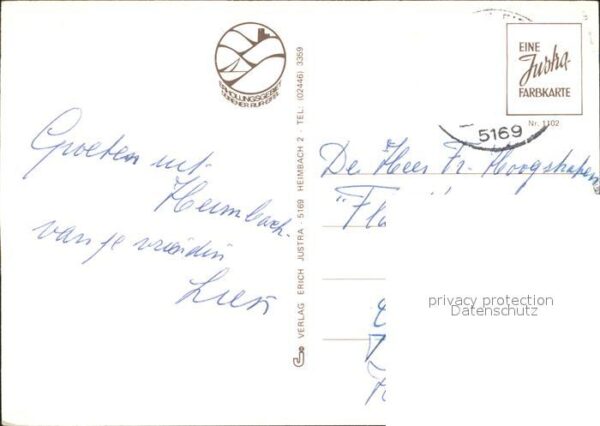 Groeten uit
Heimbach.
van je vriendin
ERHOLUNGSGEBIET
VERLAG ERICH JUSTRA - 5169 HEIMBACH 2 - TEL: (02446) 3359
EINE
Justra-
FARBKARTE
Nr. 1102
5169
De Heer Fr. Hoogstraten
privacy protection
Datenschutz